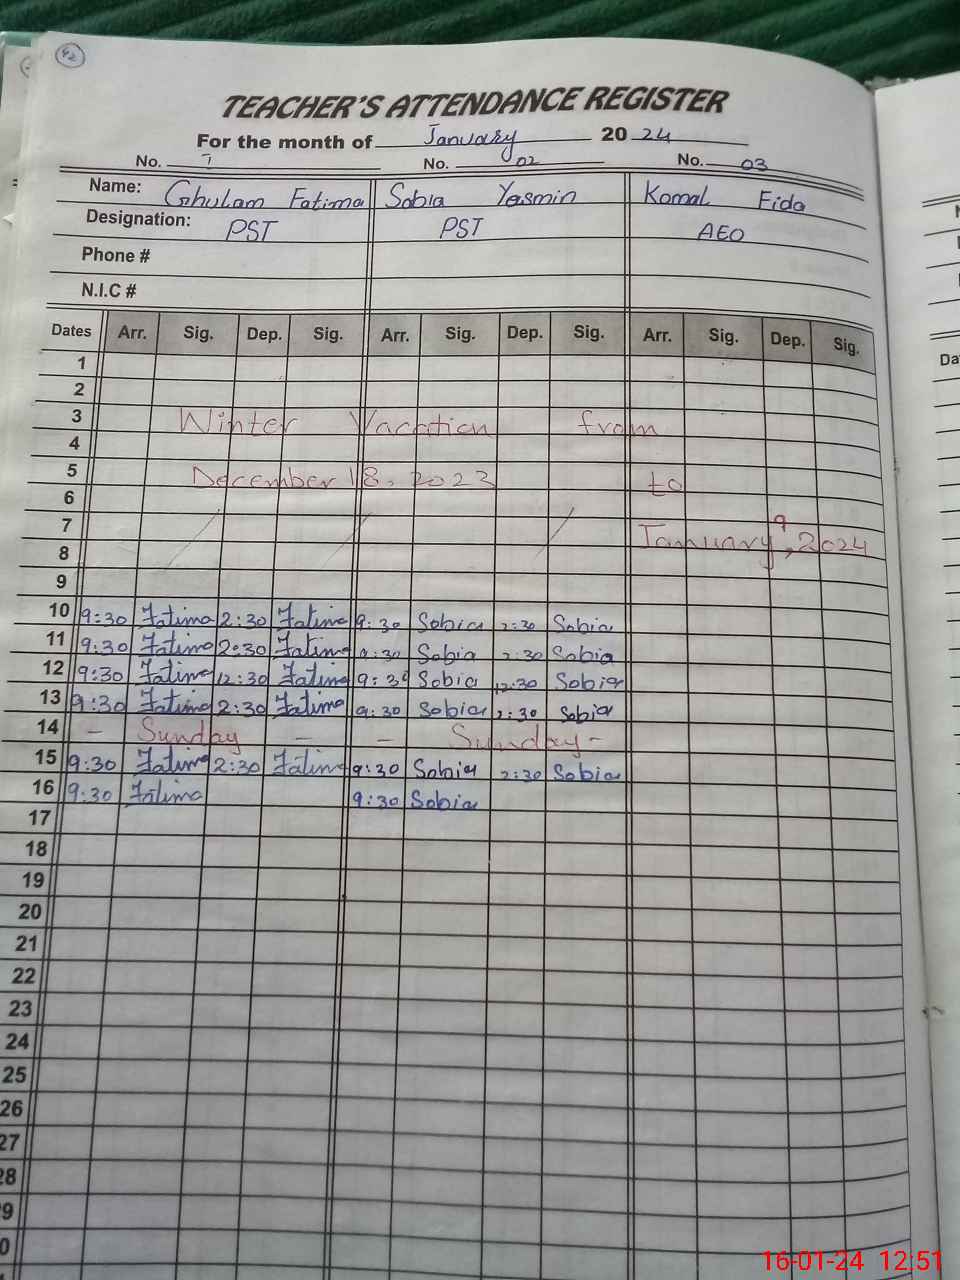 42
TEACHER'S ATTENDANCE REGISTER
For the month of January 20 24
No. 1 No. 02 No. 03
Name: Ghulam Fatima Sobia Yasmin Komal Fida
Designation: PST PST AEO
Phone #
N.I.C #
Dates Arr. Sig. Dep. Sig. Arr. Sig. Dep. Sig. Arr. Sig. Dep. Sig.
1
2
3 Winter Vacation from
4
5 December 18, 2023 to
6
7 9
8 January, 2024
9
10 9:30 Fatima 2:30 Fatima 9:30 Sobia 2:30 Sobia
11 9:30 Fatima 2:30 Fatima 9:30 Sobia 2:30 Sobia
12 9:30 Fatima 12:30 Fatima 9:30 Sobia 12:30 Sobia
13 9:30 Fatima 2:30 Fatima 9:30 Sobia 2:30 Sobia
14 - Sunday - - Sunday -
15 9:30 Fatima 2:30 Fatima 9:30 Sobia 2:30 Sobia
16 9:30 Fatima 9:30 Sobia
17
18
19
20
21
22
23
24
25
26
27
28
9
0
Da
16-01-24 12:51